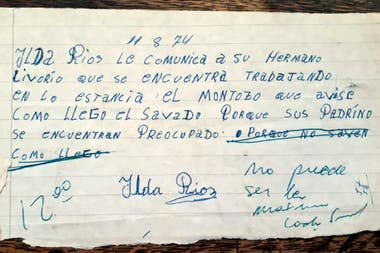 11 8 74
YLDA RIOS LE COMUNICA A SU HERMANO
LIVORIO QUE SE ENCUENTRA TRABAJANDO
EN LO ESTANCIA EL MONTOZO QUE AVISE
COMO LLEGO EL SAVADO PORQUE SUS PADRINO
SE ENCUENTRAN PREOCUPADO. PORQUE NO SAVEN
COMO LLEGO
Ylda Rios
1200
No puede
ser la